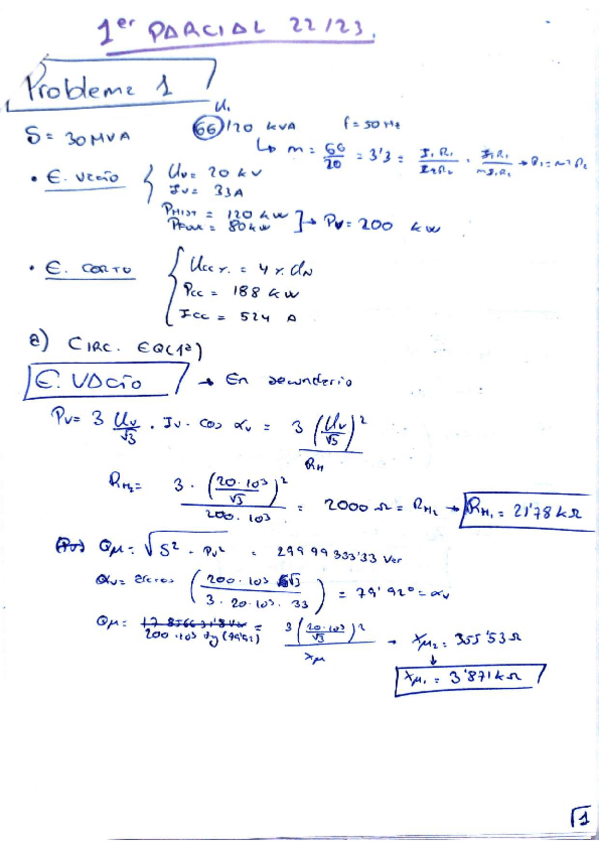 1er PARCIAL 22/23.
Problema 1
U1
S = 30MVA 66/20 kVA f = 50 Hz
↳ m = 66/20 = 3'3 = I1 R1/I2 R2 · I1 R1/mI1R1 → R1 = m² R2
• E. VACÍO { Uv = 20 kV
Iv = 33A
PHIST = 120 kW
PFOUC = 80kW ] → Pv = 200 kW
• E. CORTO { Ucc r. = 4 r. UN
Pcc = 188 kW
Icc = 524 A
a) CIRC. EQ(1ª)
E. VACÍO → En secundario
Pv = 3 Uv/√3 · Iv · cos αv = 3 (Uv/√3)²/RH
RH2 = 3 · (20·10³/√3)²/200·10³ = 2000 Ω = RH2 → RH1 = 21'78 kΩ
Qμ = √S² - Pv² = 29999333'33 Var
αv = arccos (200·10³ √3/3·20·10³·33) = 79'92º = αv
Qμ = 200·10³ tg(79'92) = 3(20·10³/√3)²/Xμ → Xμ2 = 355'53 Ω
↓
Xμ1 = 3'871 kΩ
1